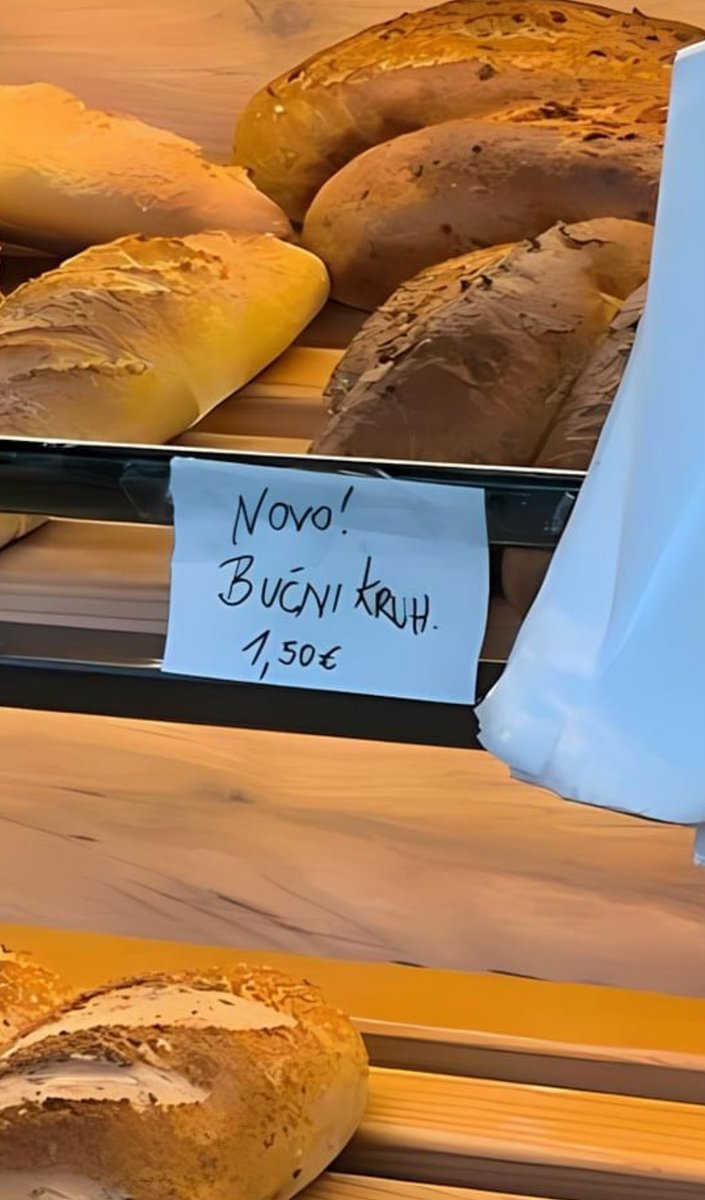 Novo!
BUĆNI KRUH.
1,50€